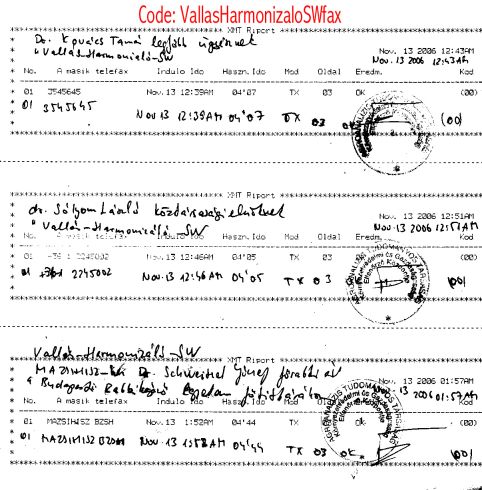 Code: VallasHarmonizaloSWfax
XMT Riport
Dr. Kovács Tamás legfőbb ügyésznek
"Vallás-Harmonizáló-SW
Nov. 13 2006 12:43AM
Nov. 13 2006 12:43AM
No. A masik telefax Indulo Ido Haszn.Ido Mod Oldal Eredm. Kod
01 3545645 Nov.13 12:39AM 04'07 TX 03 OK (00)
01 3545645 Nov 13 12:39AM 04'07 TX 03 OK (00)
XMT Riport
dr. Sólyom László köztársasági elnöknek
"Vallás-Harmonizáló SW
Nov. 13 2006 12:51AM
Nov 13 2006 12:51AM
No. A masik telefax Indulo Ido Haszn.Ido Mod Oldal Eredm. Kod
01 +36 1 2245002 Nov.13 12:46AM 04'05 TX 03 (00)
01 +361 2245002 Nov.13 12:46AM 04'05 TX 03 (00)
Vallás-Harmonizáló-SW
XMT Riport
MAZSIHISZ Dr. Schweitzer József főrabbi
a Budapesti Rabbiképző
13 2006 01:57AM
13 2006 01:57AM
No. A masik telefax Indulo Ido Haszn.Ido Mod Oldal Kod
01 MAZSIHISZ BZSH Nov.13 1:52AM 04'44 TX 03 OK (00)
01 MAZSIHISZ BZSH Nov 13 1:52AM 04'44 TX 03 OK (00)